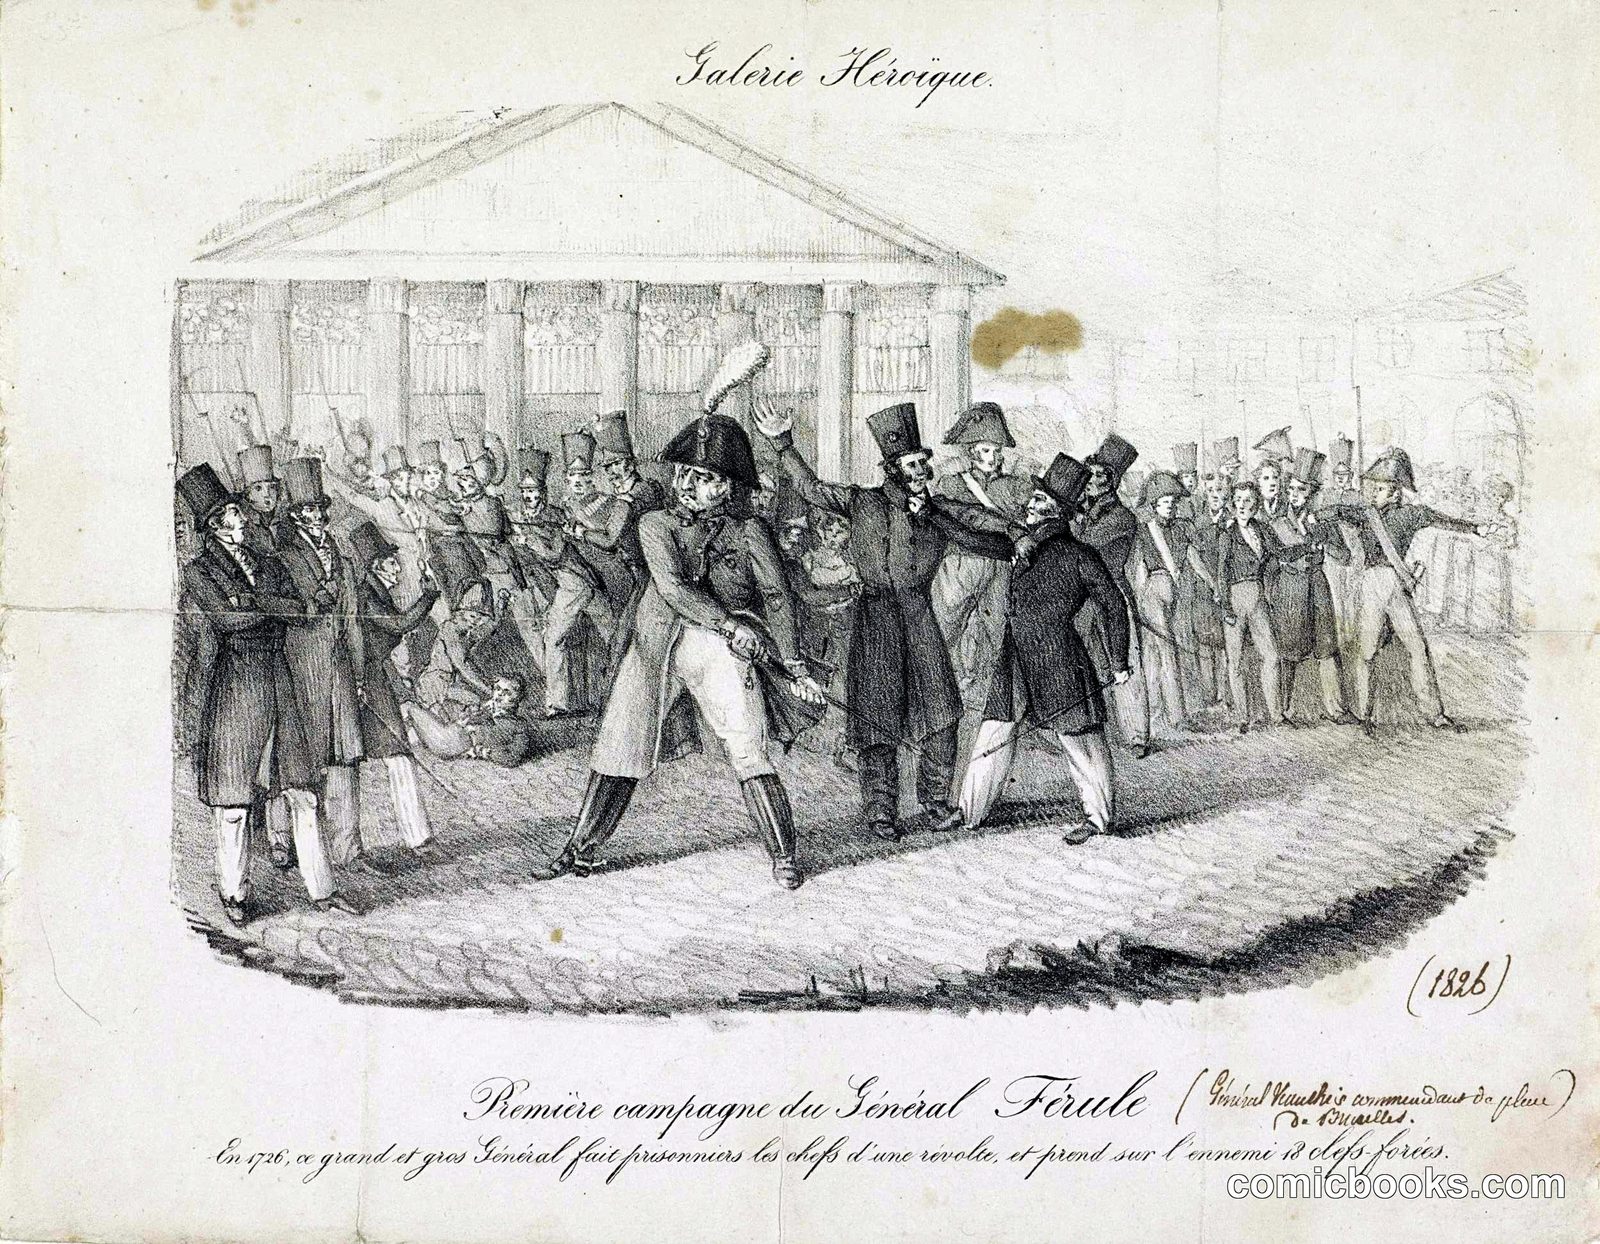 Galerie Héroïque.
(1826)
Première campagne du Général Férule (Général Wauthier commendant de place)
de Bruxelles.
En 1726, ce grand et gros Général fait prisonniers les chefs d'une révolte, et prend sur l'ennemi 18 clefs-forées.
comicbooks.com